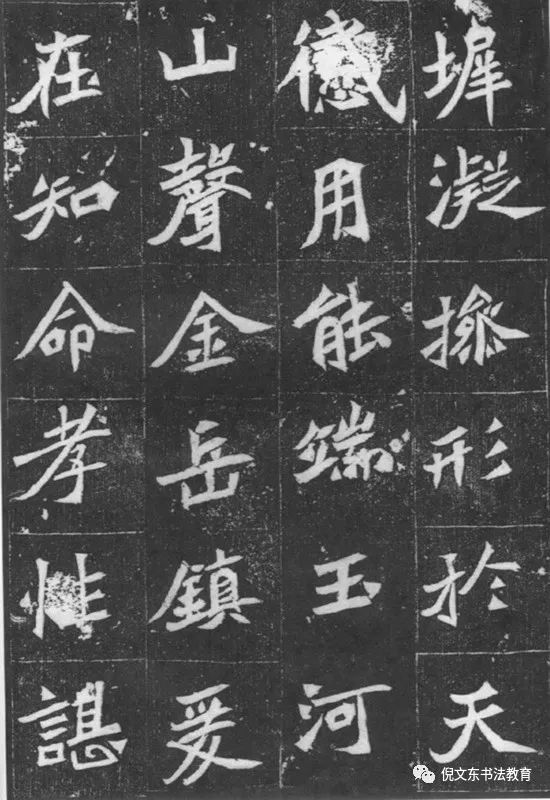 墀凝操形於天
用能端玉河
山聲金岳鎮爰
在知命孝性諶
倪文东书法教育